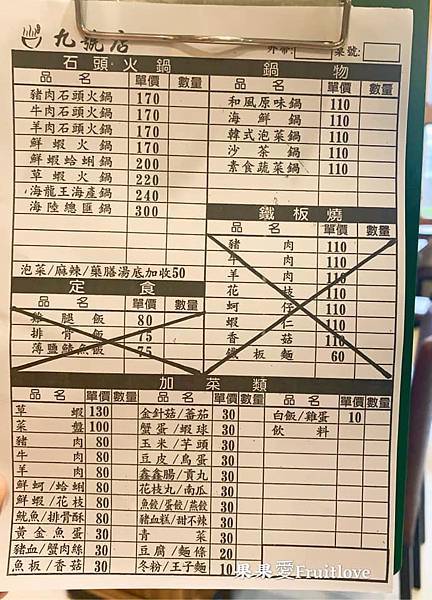 九號店
外帶: 桌號:
石頭火鍋
品名 單價 數量
豬肉石頭火鍋 170
牛肉石頭火鍋 170
羊肉石頭火鍋 170
鮮蝦火鍋 170
鮮蝦蛤蜊鍋 200
草蝦火鍋 220
海龍王海產鍋 240
海陸總匯鍋 300
泡菜/麻辣/藥膳湯底加收50
鍋物
品名 單價 數量
和風原味鍋 110
海鮮鍋 110
韓式泡菜鍋 110
沙茶鍋 110
素食蔬菜鍋 110
鐵板燒
品名 單價 數量
豬肉 110
牛肉 110
羊肉 110
花枝 110
蚵仔 110
蝦仁 110
香菇 110
鐵板麵 60
定食
品名 單價 數量
雞腿飯 80
排骨飯 75
薄鹽鯖魚飯 75
加菜類
品名 單價 數量 品名 單價 數量 品名 單價 數量
草蝦 130 金針菇/蕃茄 30 白飯/雞蛋 10
菜盤 100 蟹蛋/蝦球 30 飲料
豬肉 80 玉米/芋頭 30
牛肉 80 豆皮/鳥蛋 30
羊肉 80 鑫鑫腸/貢丸 30
鮮蚵/蛤蜊 80 花枝丸/南瓜 30
鮮蝦/花枝 80 魚餃/蛋餃/燕餃 30
魷魚/排骨酥 80 豬血糕/甜不辣 30
黃金魚蛋 30 青菜 30
豬血/蟹肉絲 30 豆腐/麵條 20
魚板/香菇 30 冬粉/王子麵 10
果果愛Fruitlove